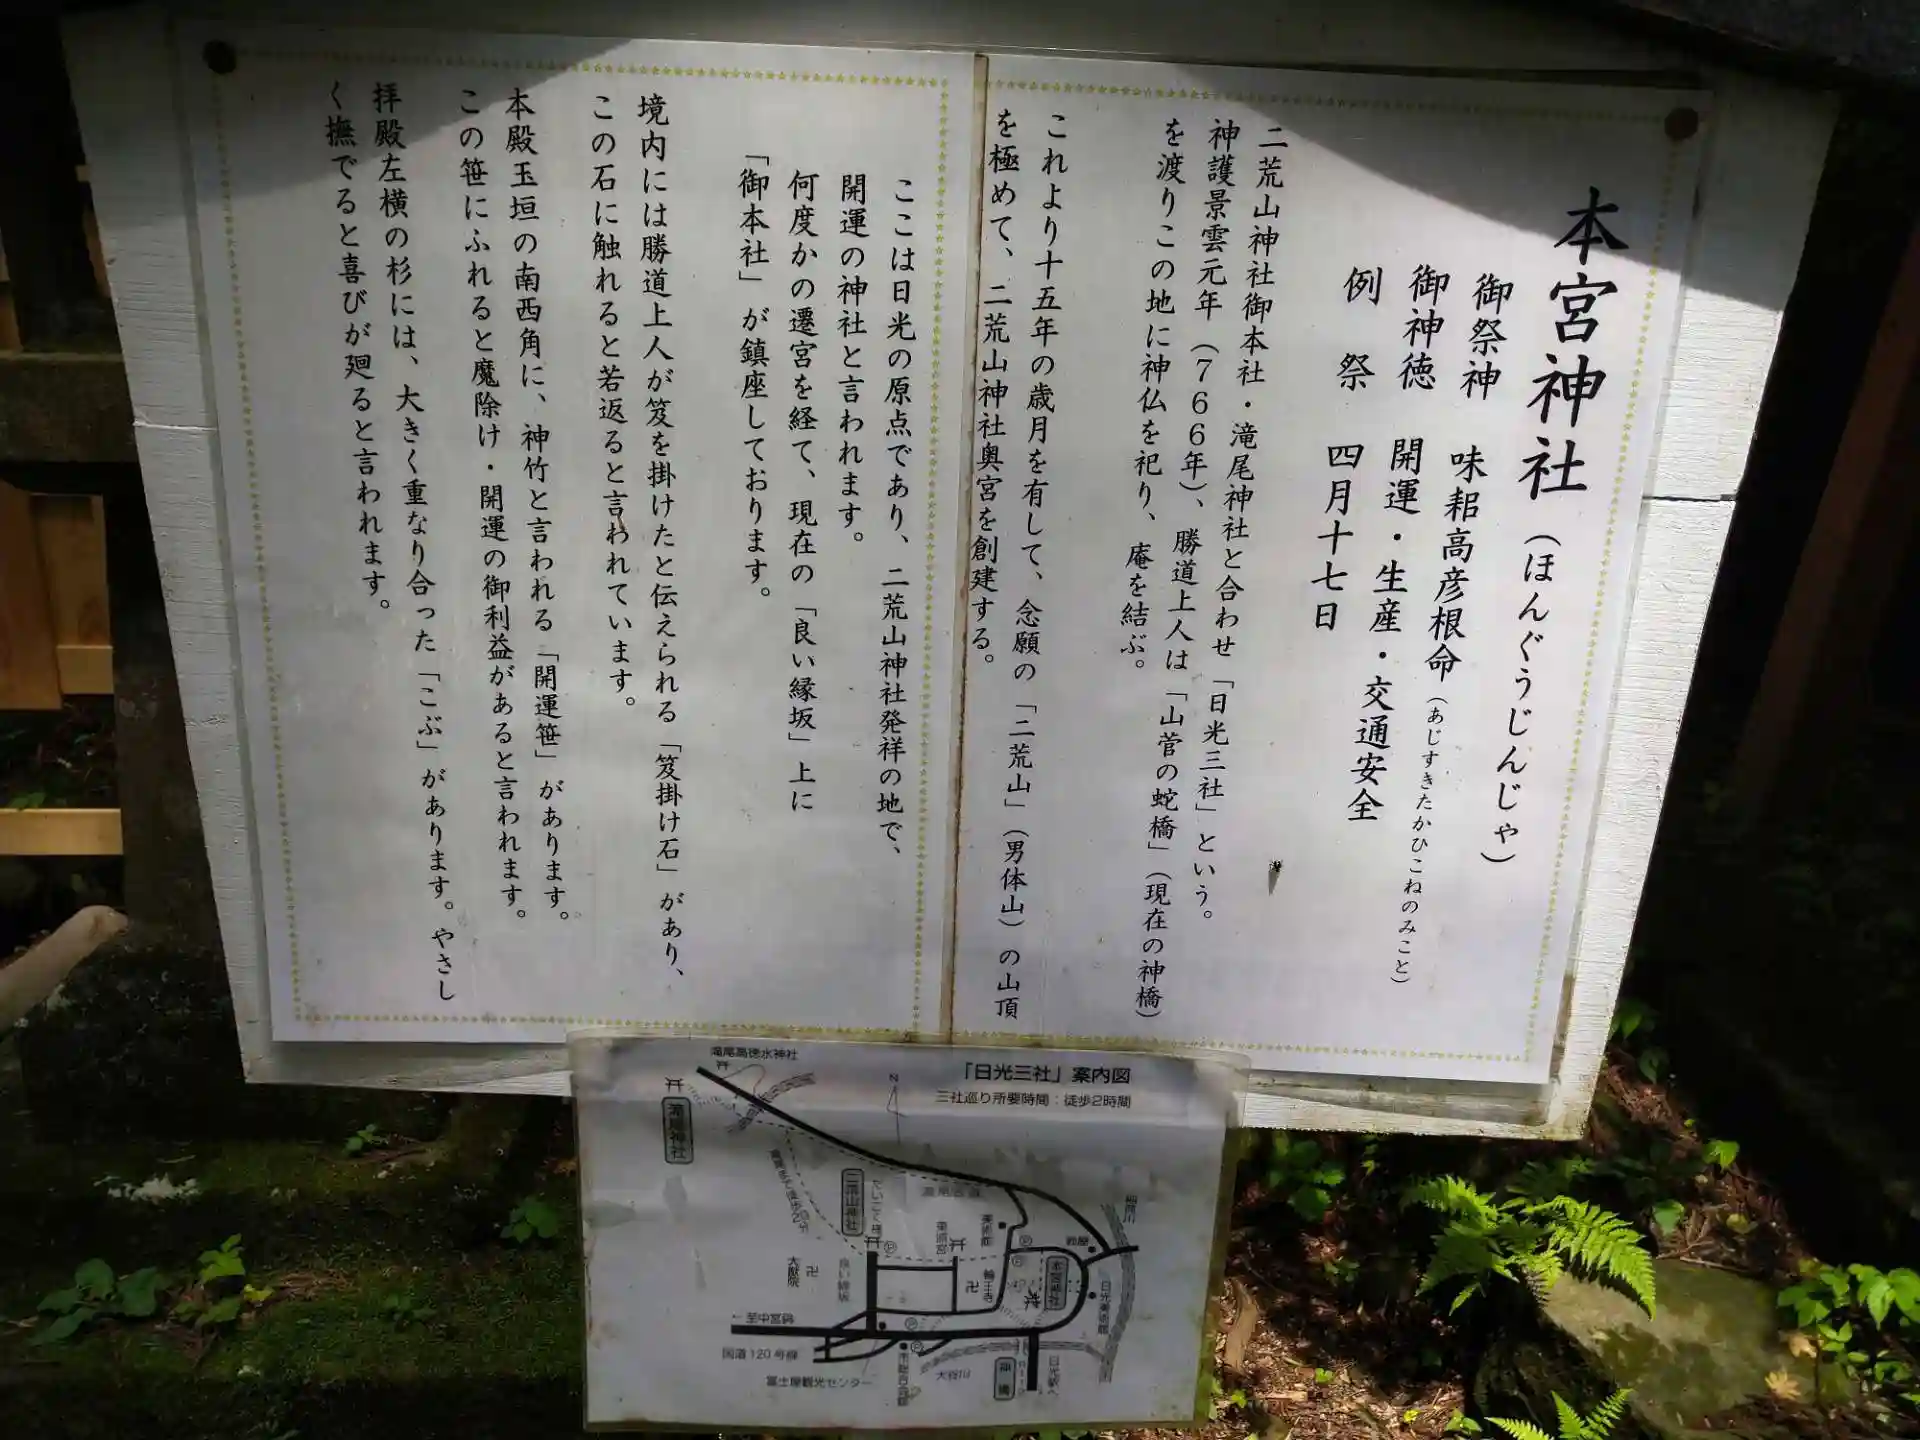 本宮神社（ほんぐうじんじゃ）
御祭神　味耜高彦根命（あじすきたかひこねのみこと）
御神徳　開運・生産・交通安全
例　祭　四月十七日
二荒山神社御本社・滝尾神社と合わせ「日光三社」という。
神護景雲元年（７６６年）、勝道上人は「山菅の蛇橋」（現在の神橋）
を渡りこの地に神仏を祀り、庵を結ぶ。
これより十五年の歳月を有して、念願の「二荒山」（男体山）の山頂
を極めて、二荒山神社奥宮を創建する。
ここは日光の原点であり、二荒山神社発祥の地で、
開運の神社と言われます。
何度かの遷宮を経て、現在の「良い縁坂」上に
「御本社」が鎮座しております。
境内には勝道上人が笈を掛けたと伝えられる「笈掛け石」があり、
この石に触れると若返ると言われています。
本殿玉垣の南西角に、神竹と言われる「開運笹」があります。
この笹にふれると魔除け・開運の御利益があると言われます。
拝殿左横の杉には、大きく重なり合った「こぶ」があります。やさし
く撫でると喜びが廻ると言われます。
「日光三社」案内図
三社巡り所要時間：徒歩2時間
滝尾高徳水神社
N
滝尾神社
二荒山神社
だいこく様
滝尾古道
美術館
東照宮
大猷院
良い縁坂
輪王寺
本宮神社
日光美術館
←至中宮祠
国道120号線
富士屋観光センター
大谷川
神橋
日光駅へ